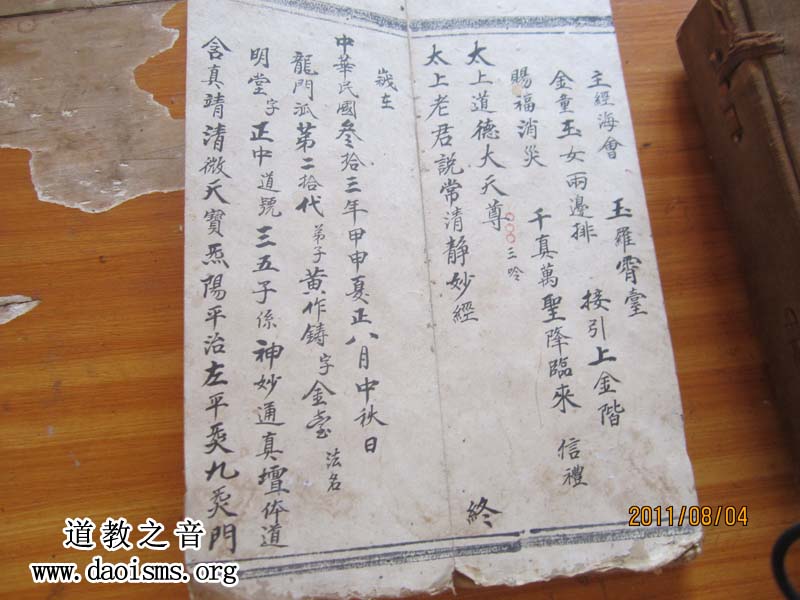 主經海會 玉羅霄臺
金童玉女兩邊排 接引上金階
賜福消災 千真萬聖降臨來 信禮
太上道德大天尊 三吟
太上老君説常清靜妙經 終
歲在
中華民國叄拾三年甲申夏正八月中秋日
龍門派第二拾代弟子黄作鑄字金臺 法名
明堂字正中道號三五子係神妙通真壇体道
含真靖清微天寶炁陽平治左平炁九炁門
2011/08/04
道教之音
www.daoisms.org